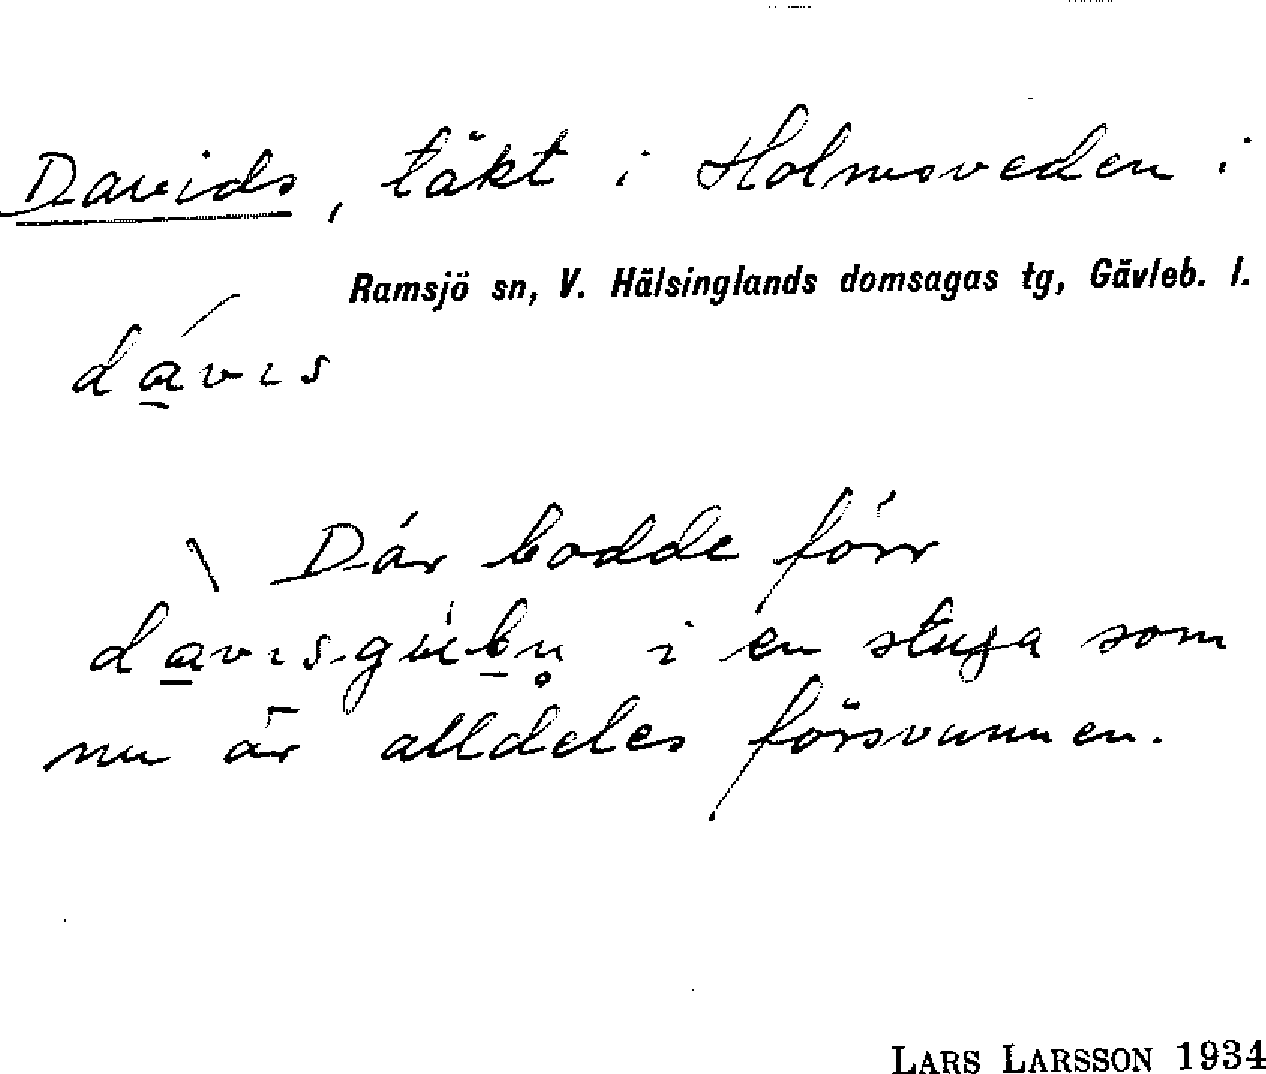 Davids, täkt i Holmsveden i
Ramsjö sn, V. Hälsinglands domsagas tg, Gävleb. l.
dávɩs
\ Där bodde förr
i en stuga som
nu är alldeles försvunnen.
LARS LARSSON 1934